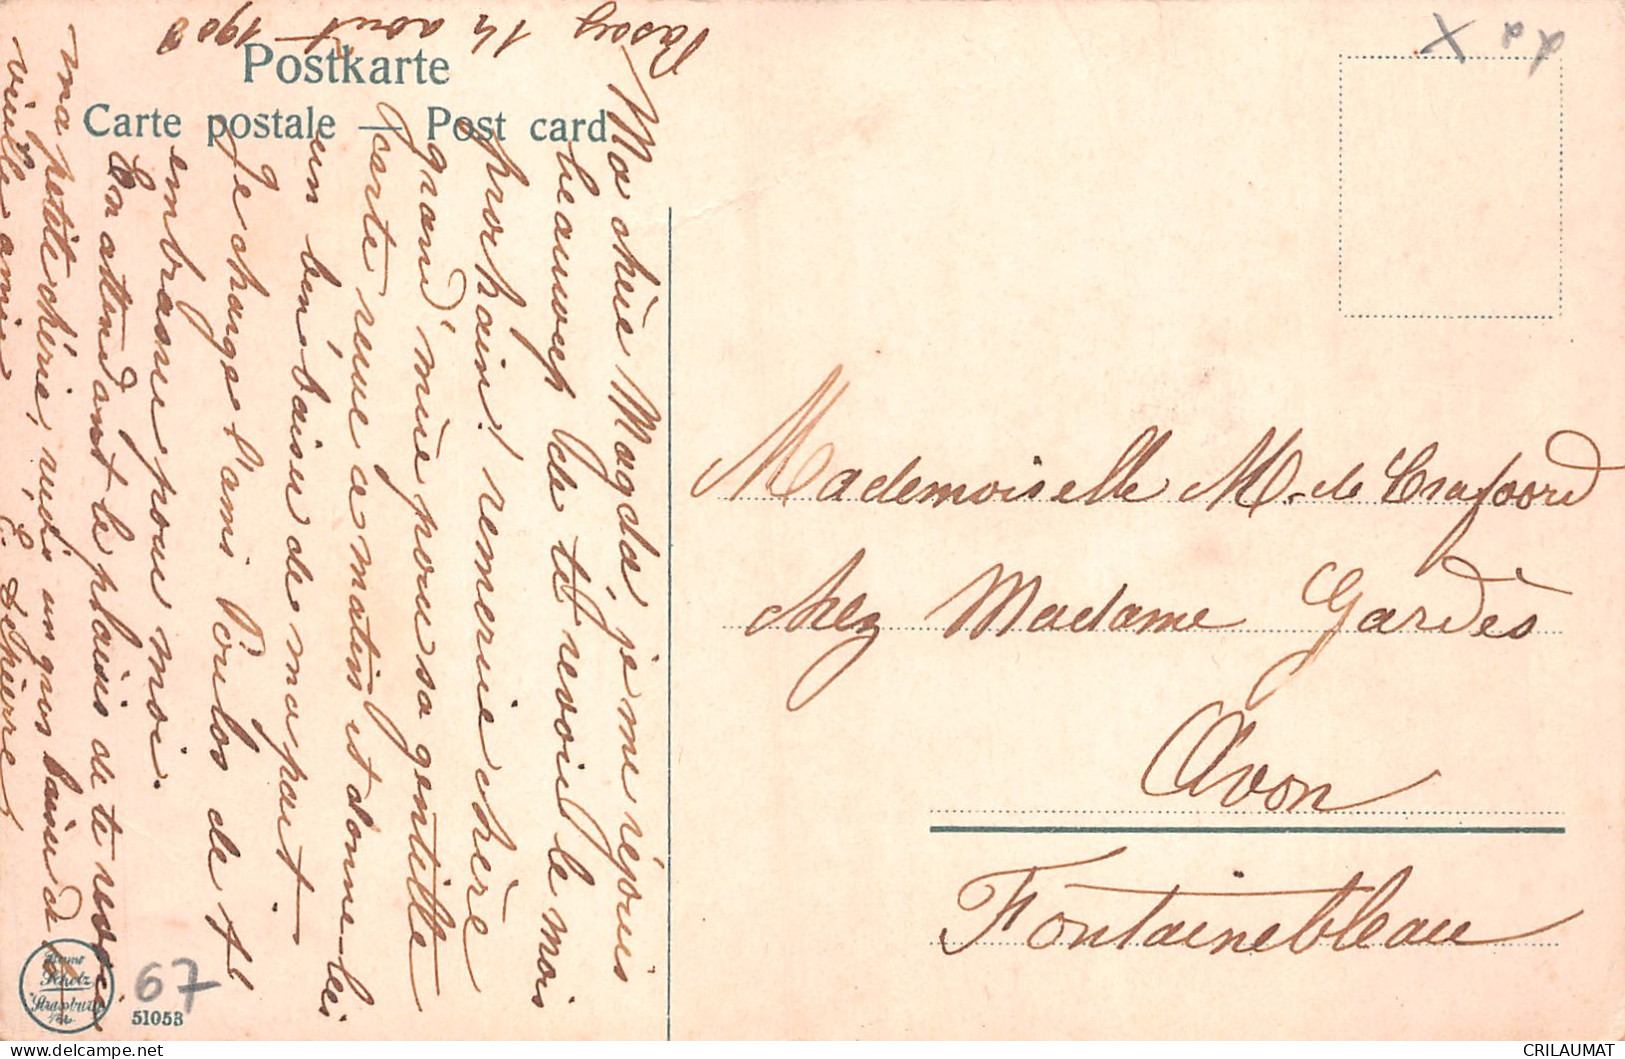 Passy 14 août 1908
Postkarte
Carte postale — Post card
Ma chère Magda, je me réjouis
beaucoup de te revoir le mois
prochain! remercie chère
grand'mère pour sa gentille
carte reçue ce matin et donne-lui
un bon baiser de ma part
Je charge l'ami Poulos de t'
embrasser pour moi.
En attendant le plaisir de te revoir
ma petite chérie, reçois un gros baiser de
vieille amie
Mademoiselle M. de Crafoord
chez Madame Gardès
Avon
Fontainebleau
67
51053
CRILAUMAT